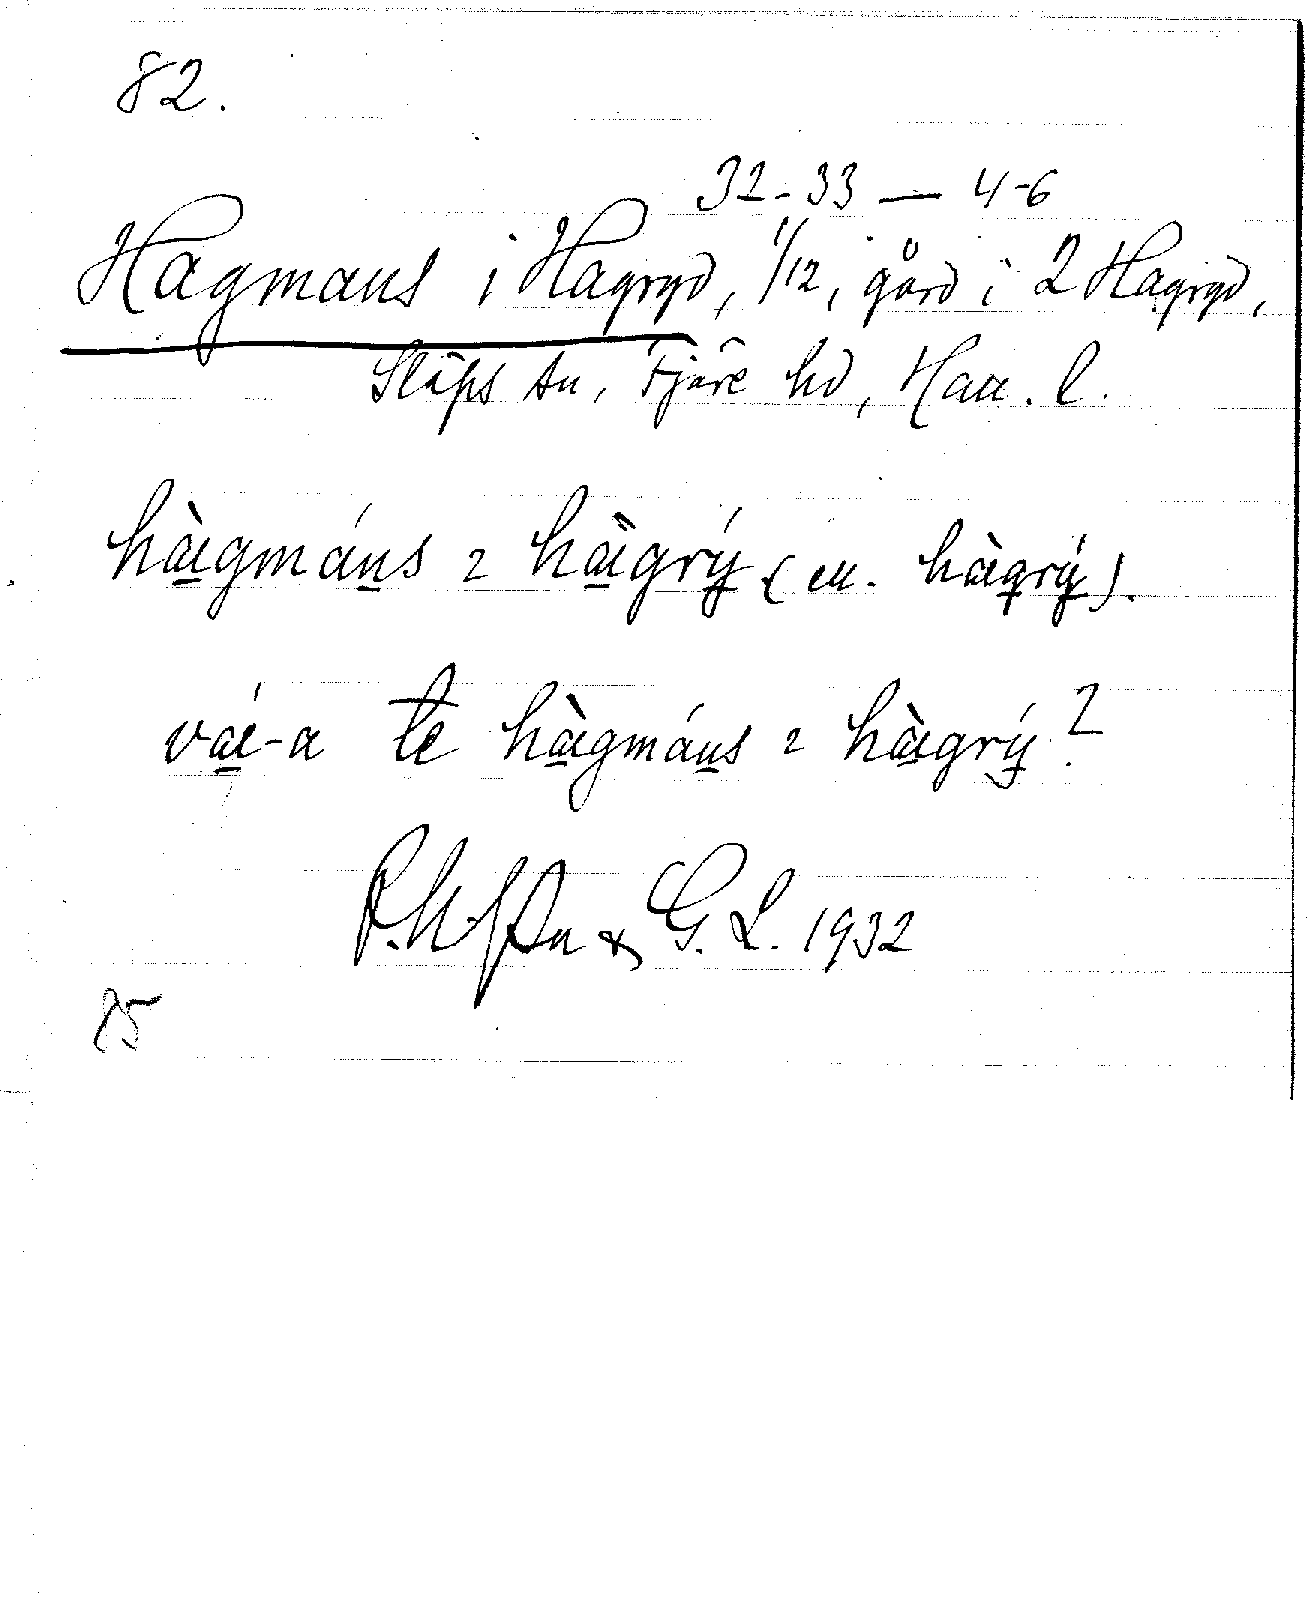 82.
32-33 — 4-6
Hagmans i Hagryd, 1/12, gård i 2 Hagryd,
Släps sn, Fjäre hd, Hall. l.
hàgmáns ɿ hàgrý (ell. hàgrý).
vá-a te hàgmáns ɿ hàgrý?
& G. L. 1932
85